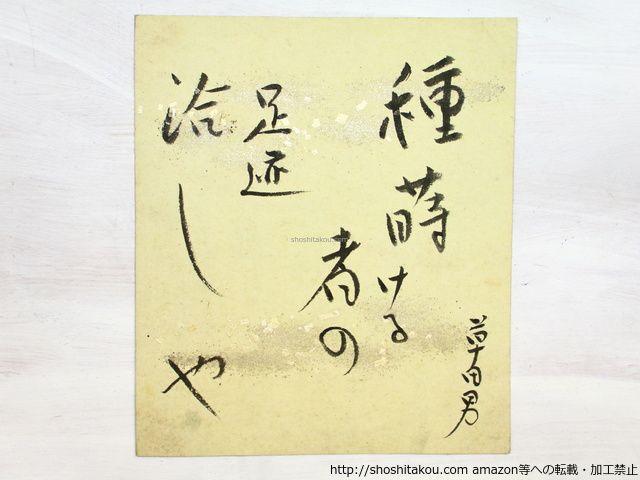 種蒔ける
者の
足迹
洽しや
草田男
shoshitakou.com
http://shoshitakou.com amazon等への転載・加工禁止